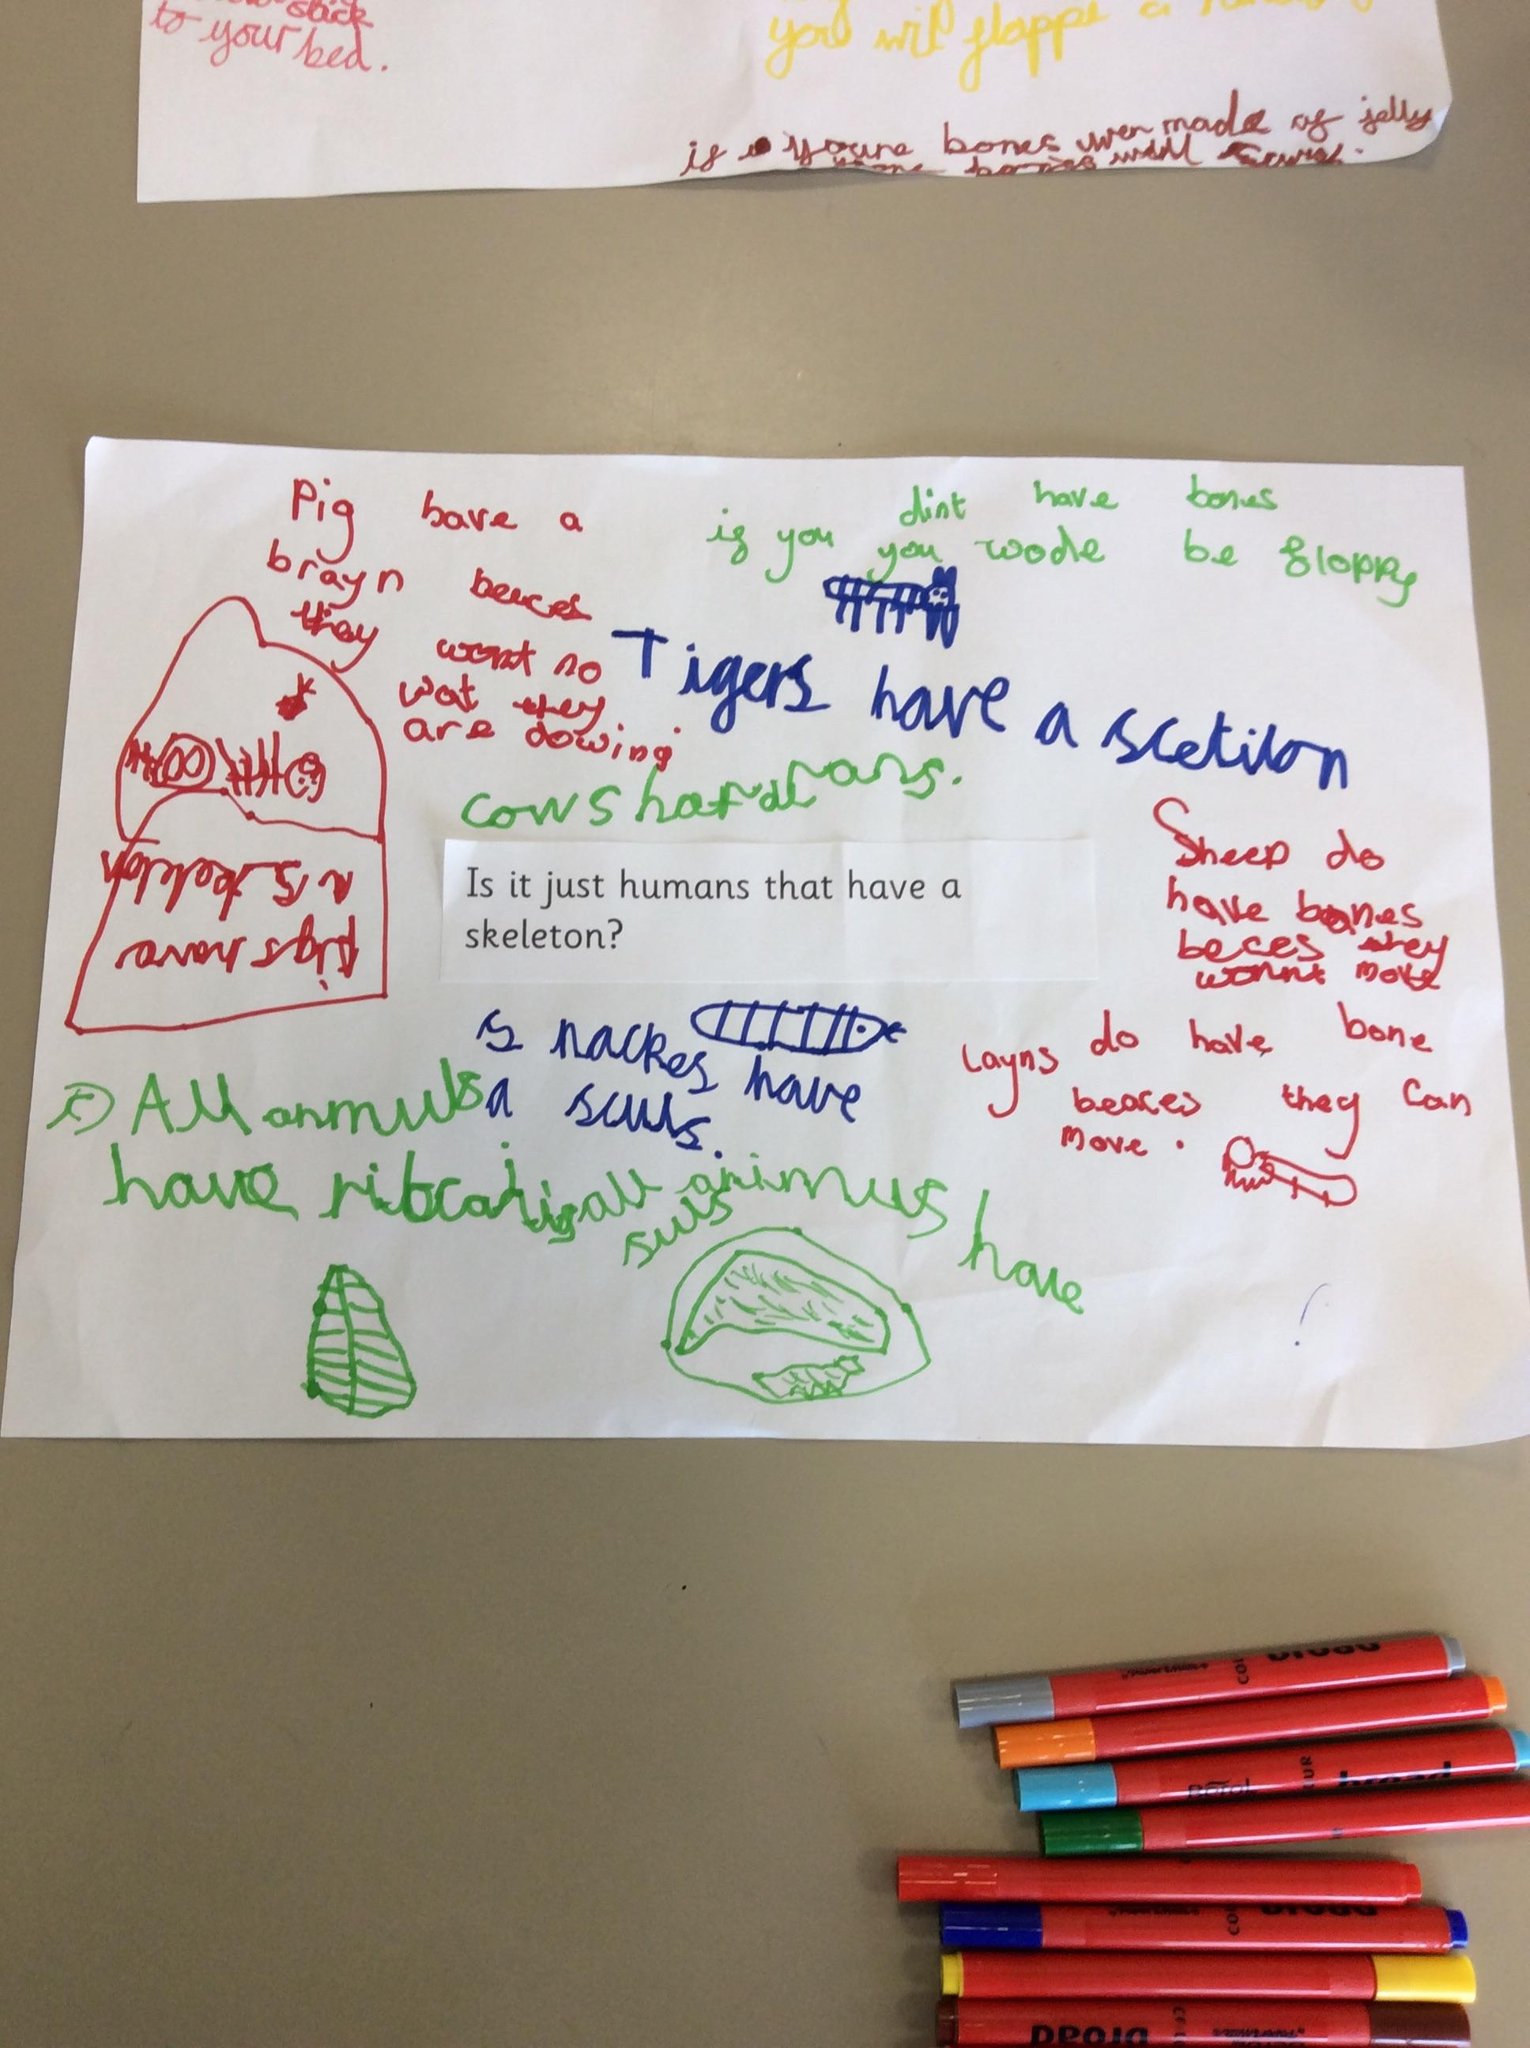 stick
to your bed.
you will floppe a
is youre bones wer made of jelly
bones will
Pig have a
brayn beaces
they wont no
wat they
are dowing
is you dint have bones
you wode be floppy
Tigers have a scetilon
cows har
Is it just humans that have a
skeleton?
pigs have
a skeleton
Sheep do
have bones
beces they
wonnt move
Layns do have bone
beaces they can
move.
snackes have
a sculs.
All anmuls
have ribcat
all animus have
suls
broad
COL
Berol
UR
broad
broad
COL
broad